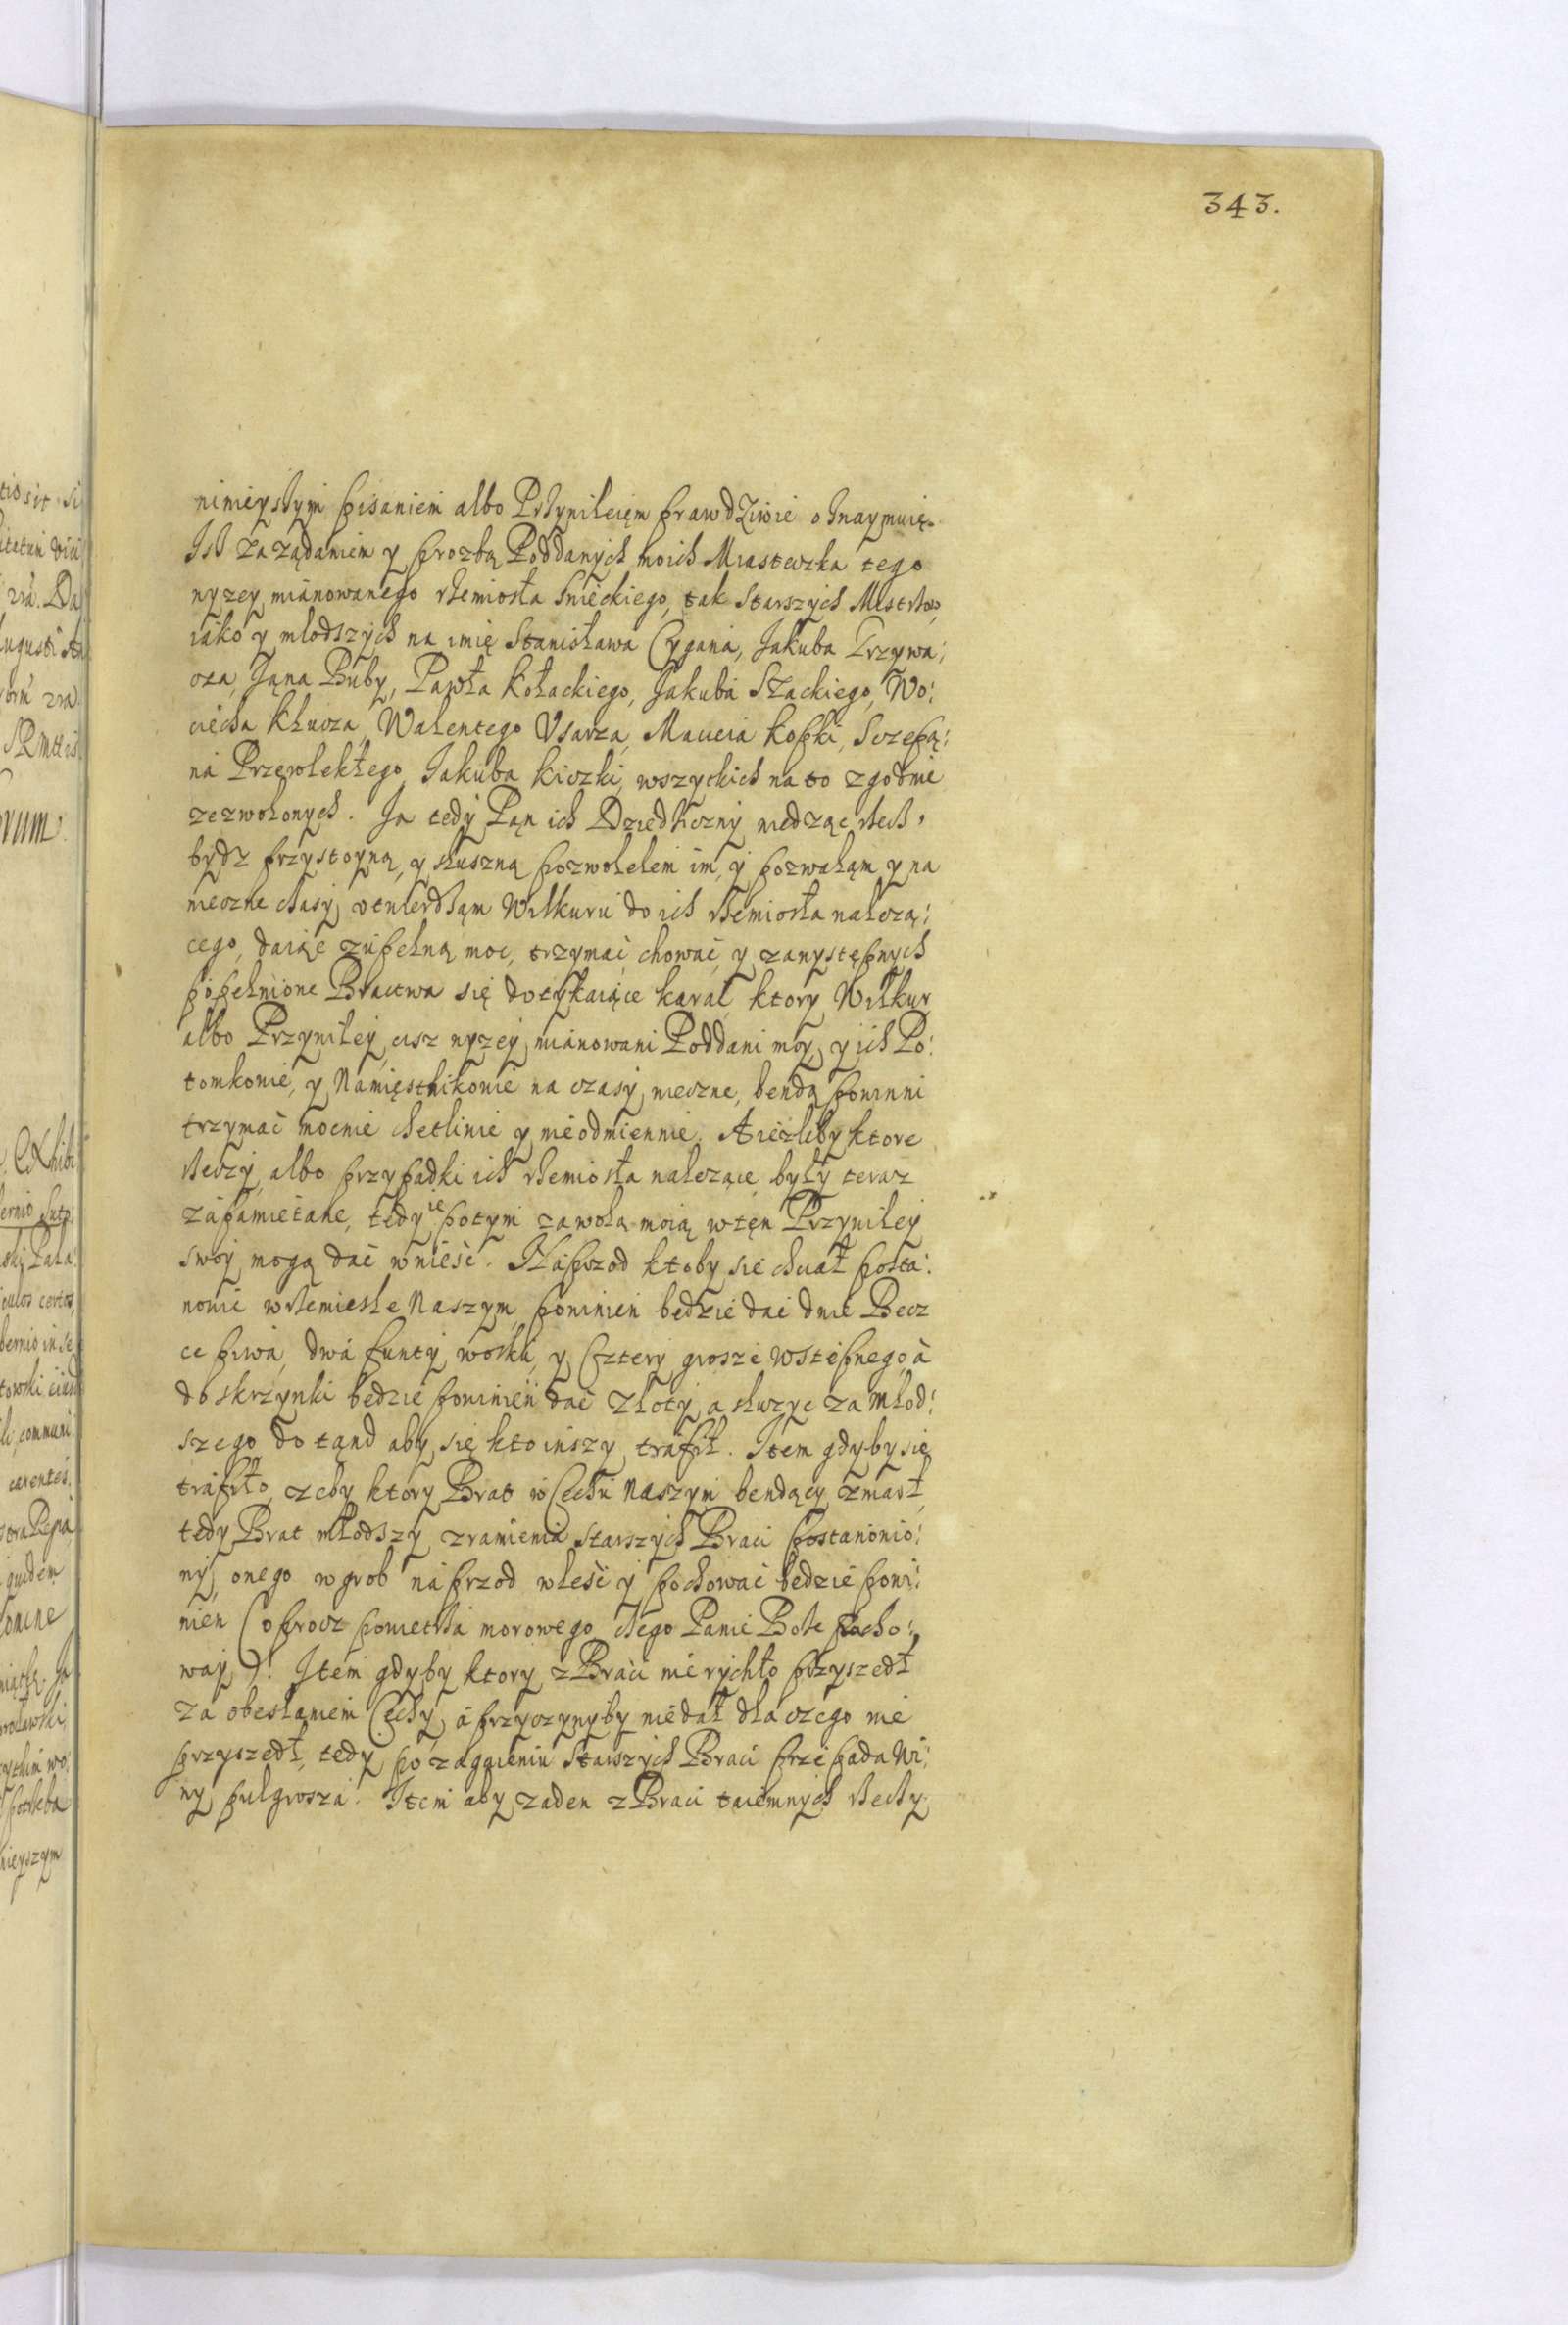 343.
ninieyszym pisaniem albo Przywileięm prawdziwie oznaymuię.
Isz za ządaniem y prozbą Poddanych moich Miasteczka tego
nyzey mianowanego rzemiosła Sweckiego, tak Starszych Mistrzow
iako y młodszych na imię Stanisława Cygana, Jakuba Trzywa:
oza, Jąna Buby, Pawła Kołackiego, Jakuba Szackiego, Wo:
ciecha Klucza, Walentego Usarza, Macieia Kopki, Sczepą:
na Przewlekłego, Jakuba Kiczki, wszyckich na to zgodnie
zezwolonych. Ja tedy Pąn ich Dziedziczny widząc rzecz
bydz przystoyną, y słuszną pozwolełem im, y pozwaląm y na
wieczne czasy utwierdząm Wilkuru do ich rzemiosła nalezą:
cego, daiąc zupełną moc, trzymać chować y zawystępnych
popełnione Bractwa się dotykaiące karać, ktory Wilkur
albo Przywiley cisz nyzey mianowani Poddani moy y ich Po:
tomkowie, y Namięstnikowie na czasy wieczne, bendą powinni
trzymać mocnie chetliwie y nieodmiennie. A iezliby ktore
rzeczy albo przypadki ich rzemiosła nalezące były teraz
zapamietane, tedy ie potym za wolą moią w tęn Przywiley
swoy mogą dać wnieść. Naprzod ktoby sie chciał posta:
nowić w rzemieśle Naszym, powinien będzie dać dwie Becz
ce piwa, dwa funty wosku, y Cztery grosze wstepnego, a
do skrzynki będzie powinień dać Złoty, a służyc za Młod:
szego do tąnd aby się kto inszy trafił. Item gdyby się
trafiło, zeby ktory Brat w Cechu Naszym bendący zmarł,
tedy Brat młodszy z ramienia Starszych Braci postanowio:
ny, onego w grob naprzod wleść y pochować będzie powi:
nien (oprocz powietrza morowego, czego Panie Boze zacho:
way). Item gdyby ktory z Braci nie rychło przyszedł
za obesłaniem Cechy, a przyczynyby nie dał dla czego nie
przyszedł, tedy po zagaieniu Starszych Braci przepada Wi:
ny pułgrosza. Item aby zaden z Braci taiemnych rzeczy